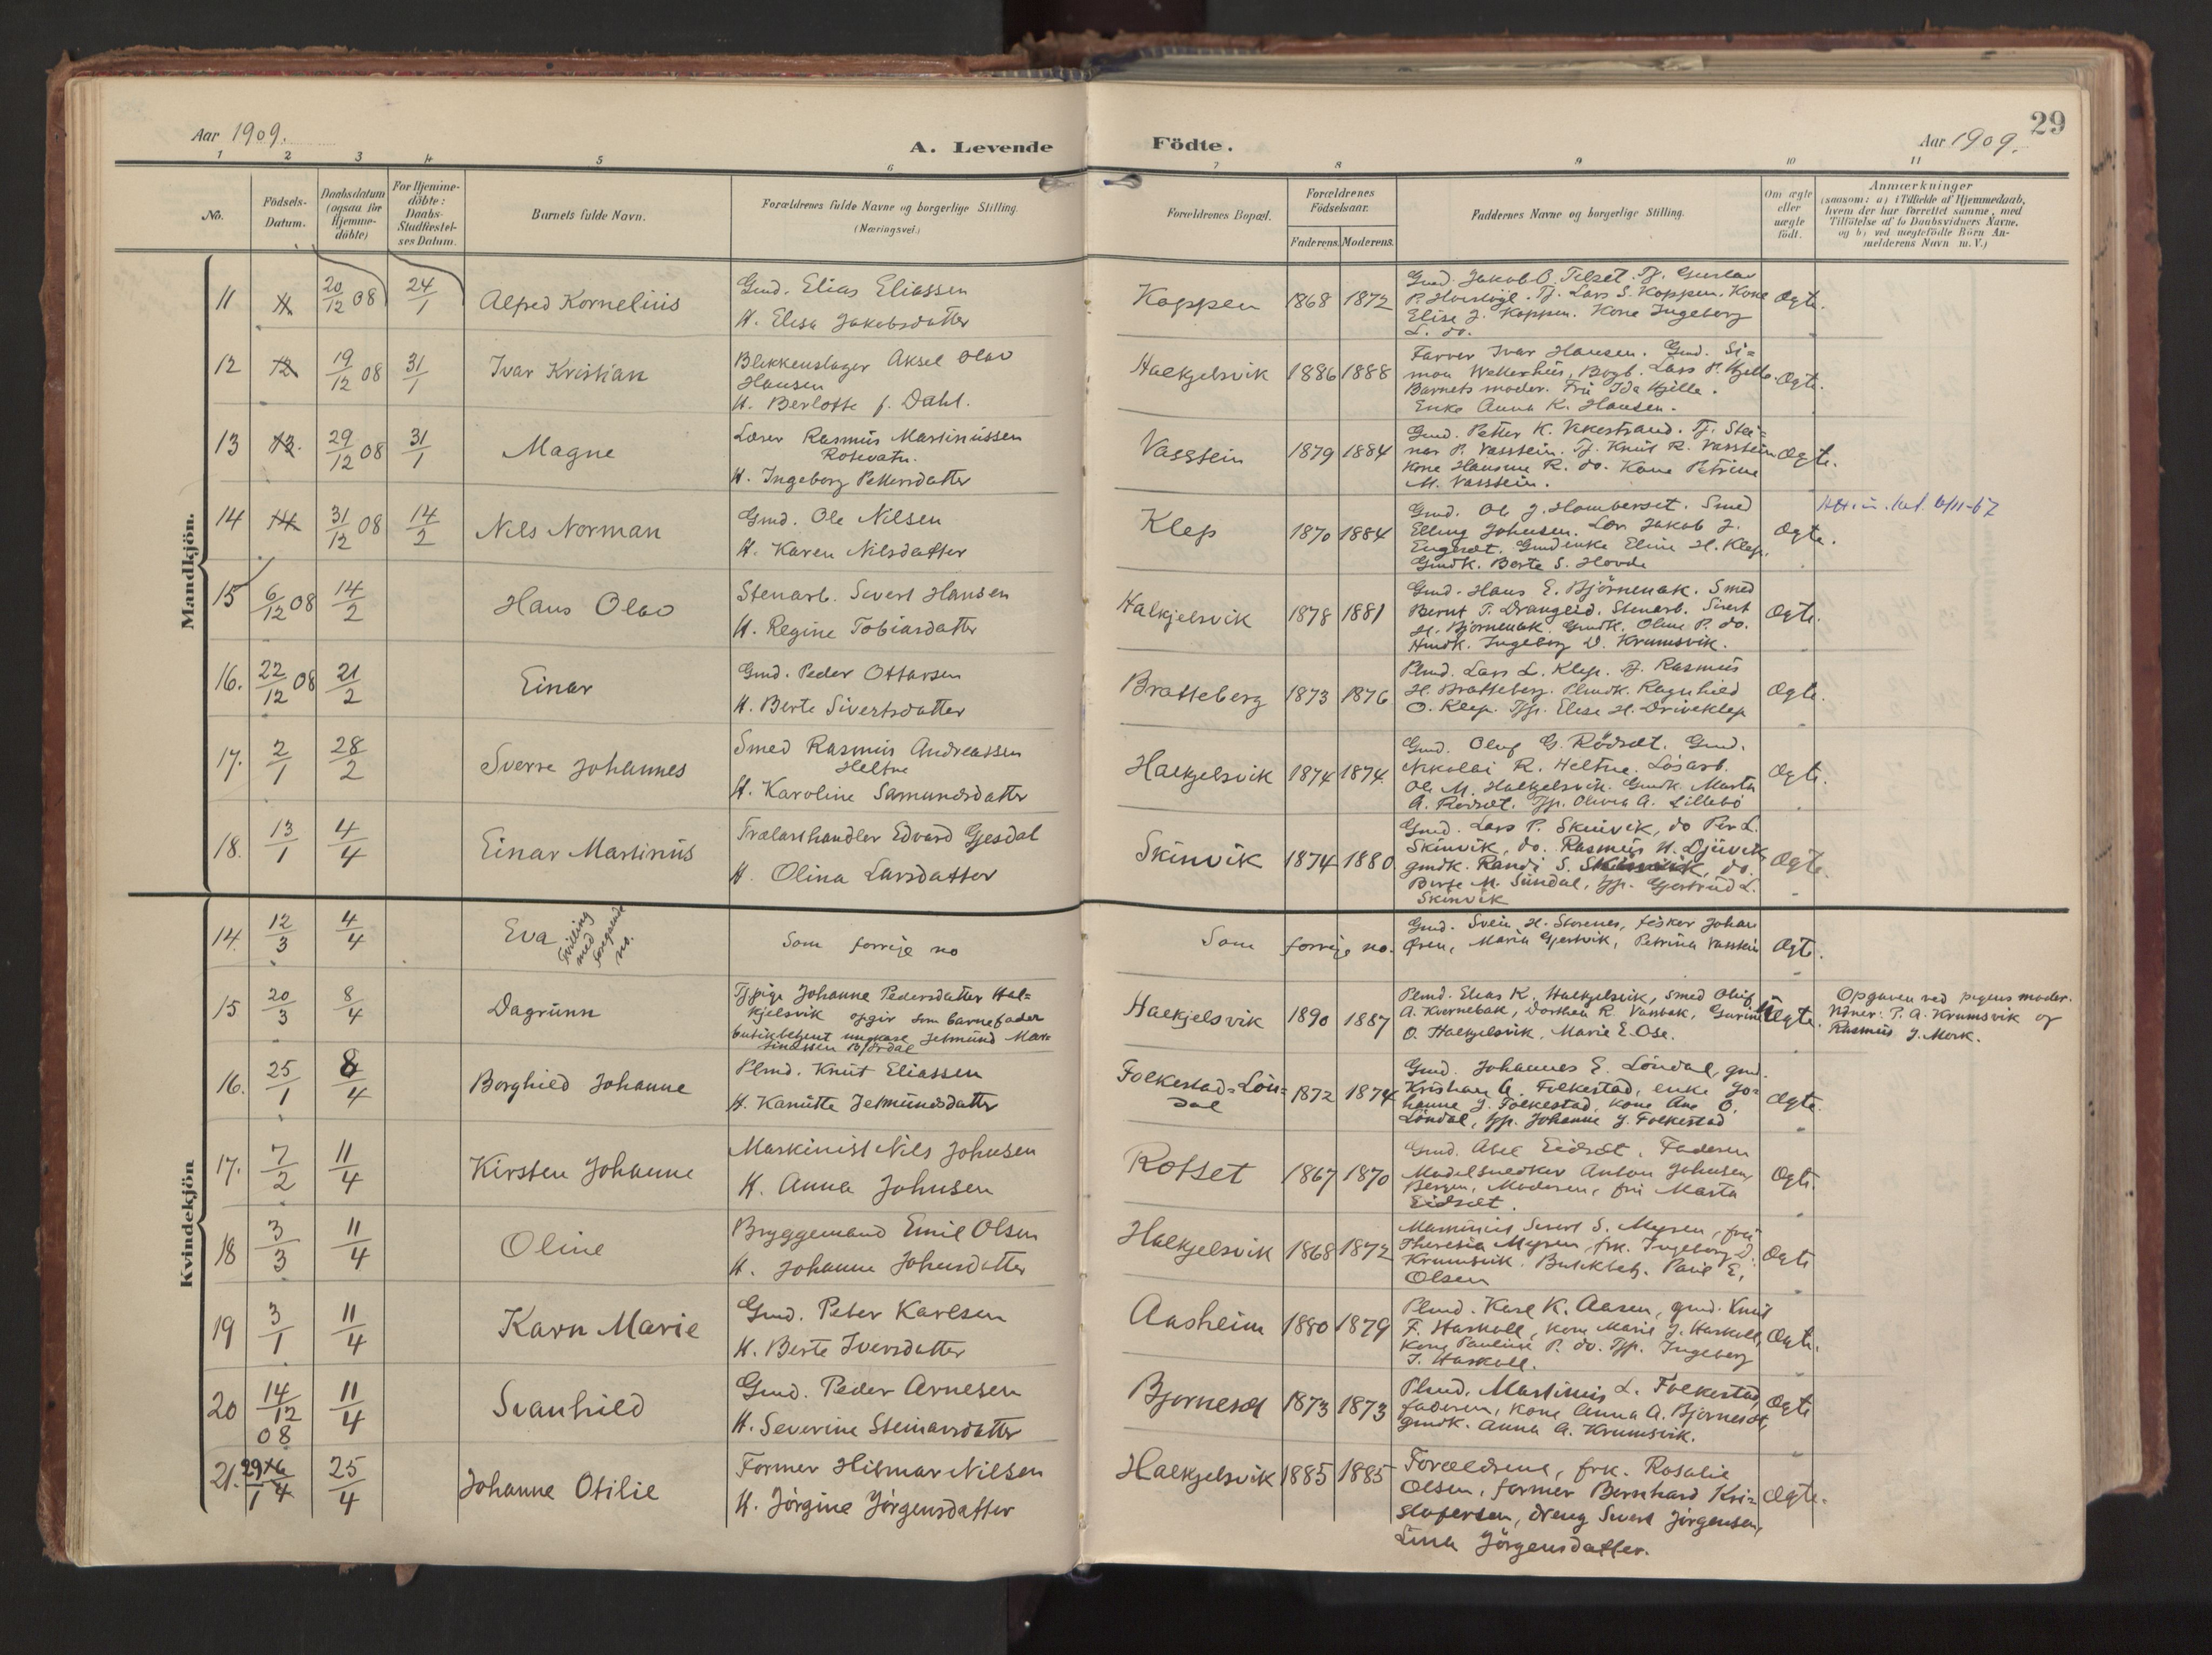 29
Aar 1909.
A. Levende
Födte.
Aar 1909.
1 2 3 4 5 6 7 8 9 10 11
No.
Födsels-
Datum.
Daabsdatum
(ogsaa for
Hjemme-
döbte)
For Hjemme-
döbte:
Daabs-
Stadfæstel-
ses Datum.
Barnets fulde Navn.
Forældrenes fulde Navne og borgerlige Stilling.
(Næringsvei.)
Forældrenes Bopæl.
Forældrenes
Födselsaar.
Faderens. Moderens.
Faddernes Navne og borgerlige Stilling.
Om ægte
eller
uægte
födt.
Anmærkninger
(saasom: a) i Tilfælde af Hjemmedaab,
hvem der har forrettet samme, med
Tilföielse af to Daabsvidners Navne,
og b) ved uægtefödte Börn An-
melderens Navn m.V.)
Mandkjön.
11 20/12 08 24/1 Alfred Kornelius
Gmd. Elias Eliassen
H. Elisa Jakobsdatter
Koppen 1868 1872
Gmd. Jakob O. Telset. Tj. Gustav
P. . Tj. Lars S. Koppen. Kone
Elise J. Koppen. Kone Ingeborg
L. do.
Ægte.
12 12 19/12 08 31/1 Ivar Kristian
Blikkenslager Aksel Olav
Hansen
H. Berlotte f. Dahl.
Halkjelsvik 1886 1888
Farver Ivar Hansen. Gmd. Si=
mon Welterhus, Bogb. Lars P. Hjelle.
Barnets moder. Fru Ida Hjelle.
Enke Anna K. Hansen.
Ægte.
13 13. 29/12 08 31/1 Magne
Lærer Rasmus Martinussen
Rotevatn.
H. Ingeborg Pettersdatter
Vasstein 1879 1884
Gmd. Petter K. Vikestrand. Tj. Stei=
nar P. Vasstein. Tj. Knut R. Vasstein
Kone Hansine R. do. Kone Petrine
M. Vasstein.
Ægte.
14 14 31/12 08 14/2 Nils Norman
Gmd. Ole Nilsen
H. Karen Nilsdatter
Klep 1870 1884
Gmd. Ole J. Homberset. Smed
Elling Johnsen. Lær Jakob J.
Engeset. Gmdenke Eline H. Klep.
Gmdk. Berte S. Hovde
Ægte.
15 6/12 08 14/2 Hans Olav
Stenarb. Sivert Hansen
H. Regine Tobiasdatter
Halkjelsvik 1878 1881
Gmd. Hans E. Björnenak. Smed
Bernt T. Drangeid. Stenarb. Sivert
H. Björnenak. Gmdk. Oline P. do.
Hmdk. Ingeborg D. Krumsvik.
Ægte.
16. 22/12 08 21/2 Einar
Gmd. Peder Ottarsen
H. Berte Sivertsdatter
Bratteberg 1873 1876
Plmd. Lars L. Klep. Tj. Rasmus
H. Bratteberg. Plmdk. Ragnhild
O. Klep. Tjp. Elise H. Driveklep
Ægte.
17. 2/1 28/2 Sverre Johannes
Smed Rasmus Andreassen
Heltne
H. Karoline Samundsdatter
Halkjelsvik 1874 1874
Gmd. Oluf G. Rödsæt. Gmd.
Nikolai R. Heltne. Lösarb.
Ole M. Halkjelsvik. Gmdk. Marta
A. Rödsæt. Tjp. Olivia A. Lillebö
Ægte.
18. 13/1 4/4 Einar Martinus
Trælasthandler Edvard Gjesdal
H. Olina Larsdatter
Skinvik 1874 1880
Gmd. Lars P. Skinvik, do Per L.
Skinvik, do. Rasmus H. Djuvik
gmdk. Randi S. Skinvik, do.
Berte M. Sundal, tjp. Gjertrud L.
Skinvik
Ægte.
Kvindekjön
14. 12/3 4/4 Eva
Tvilling
med
forgaaende
no.
Som forrige no
Som forrige no.
Gmd. Svein H. Storenes, fisker Johan
Øren, Maria Gjertvik, Petrina Vasstein
Ægte.
15 20/3 8/4 Dagrunn
Tjpige Johanne Pedersdatter Hal=
kjelsvik opgir som barnefader
butikbetjent ungkarl Jetmund Mar=
tinussen Björdal
Halkjelsvik 1890 1887
Plmd. Elias K. Halkjelsvik, smed Oluf
A. Kvernebak, Dorthea R. Vanbak, Gurine
O. Halkjelsvik, Marie E. Ose.
Uægte.
Opgaven ved pigens moder.
Vidner: P. A. Krumsvik og
Rasmus J. Mork.
16. 25/1 8/4 Borghild Johanne
Plmd. Knut Eliassen
H. Kanutte Jetmundsdatter
Folkestad=Lön=
dal
1872 1874
Gmd. Johannes E. Löndal, gmd.
Kristian A. Folkestad, enke Jo=
hanne J. Folkestad, kone Ane O.
Löndal, tjp. Johanne J. Folkestad
Ægte.
17. 7/2 11/4 Kirsten Johanne
Maskinist Nils Johnsen
H. Anna Johnsen
Rotset 1867 1870
Gmd. Abel Eidsæt. Faderen
Modelsnedker Anton Johnsen,
Bergen, Moderen, fru Marta
Eidsæt.
Ægte.
18 3/3 11/4 Oline
Bryggemand Emil Olsen
H. Johanne Johnsdatter
Halkjelsvik 1868 1872
Maskinist Sivert S. Myren, fru
Theresia Myren, frk. Ingeborg D.
Krumsvik. Butikbetj. Paul E.
Olsen
Ægte
19 3/1 11/4 Karn Marie
Gmd. Peter Karlsen
H. Berte Iversdatter
Aasheim 1880 1879
Plmd. Karl K. Aasen, gmd. Knut
F. Haskoll, kone Marie J. Haskoll,
kone Pauline P. do. Tjp. Ingeborg
I. Haskoll.
Ægte.
20 14/12 08 11/4 Svanhild
Gmd. Peder Arnesen
H. Severine Steinarsdatter
Bjørneset 1873 1873
Plmd. Martinus L. Folkestad,
faderen, kone Anna A. Bjørneset,
gmdk. Anna A. Krumsvik.
Ægte
21. 29/1 25/4 Johanne Otilie
Former Hilmar Nilsen
H. Jörgine Jörgensdatter
Halkjelsvik 1885 1885
Forældrene, frk. Rosalie
Olsen, former Bernhard Kri=
stofersen, dreng Sivert Jörgensen,
Lina Jörgensdatter.
Ægte.